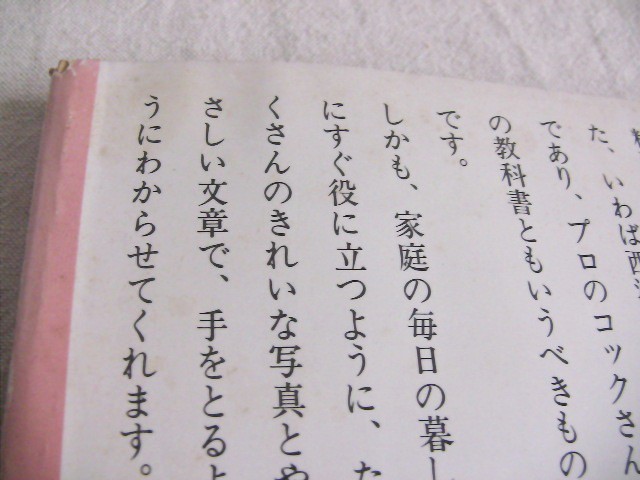 た、いわば西洋
であり、プロのコックさん
の教科書ともいうべきもの
です。
しかも、家庭の毎日の暮し
にすぐ役に立つように、た
くさんのきれいな写真とや
さしい文章で、手をとるよ
うにわからせてくれます。